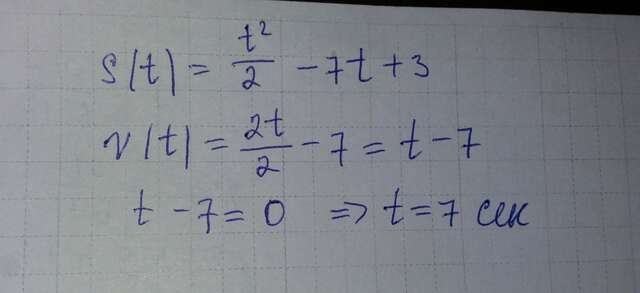 s(t) = t²/2 - 7t + 3
v(t) = 2t/2 - 7 = t - 7
t - 7 = 0 ⇒ t = 7 сек